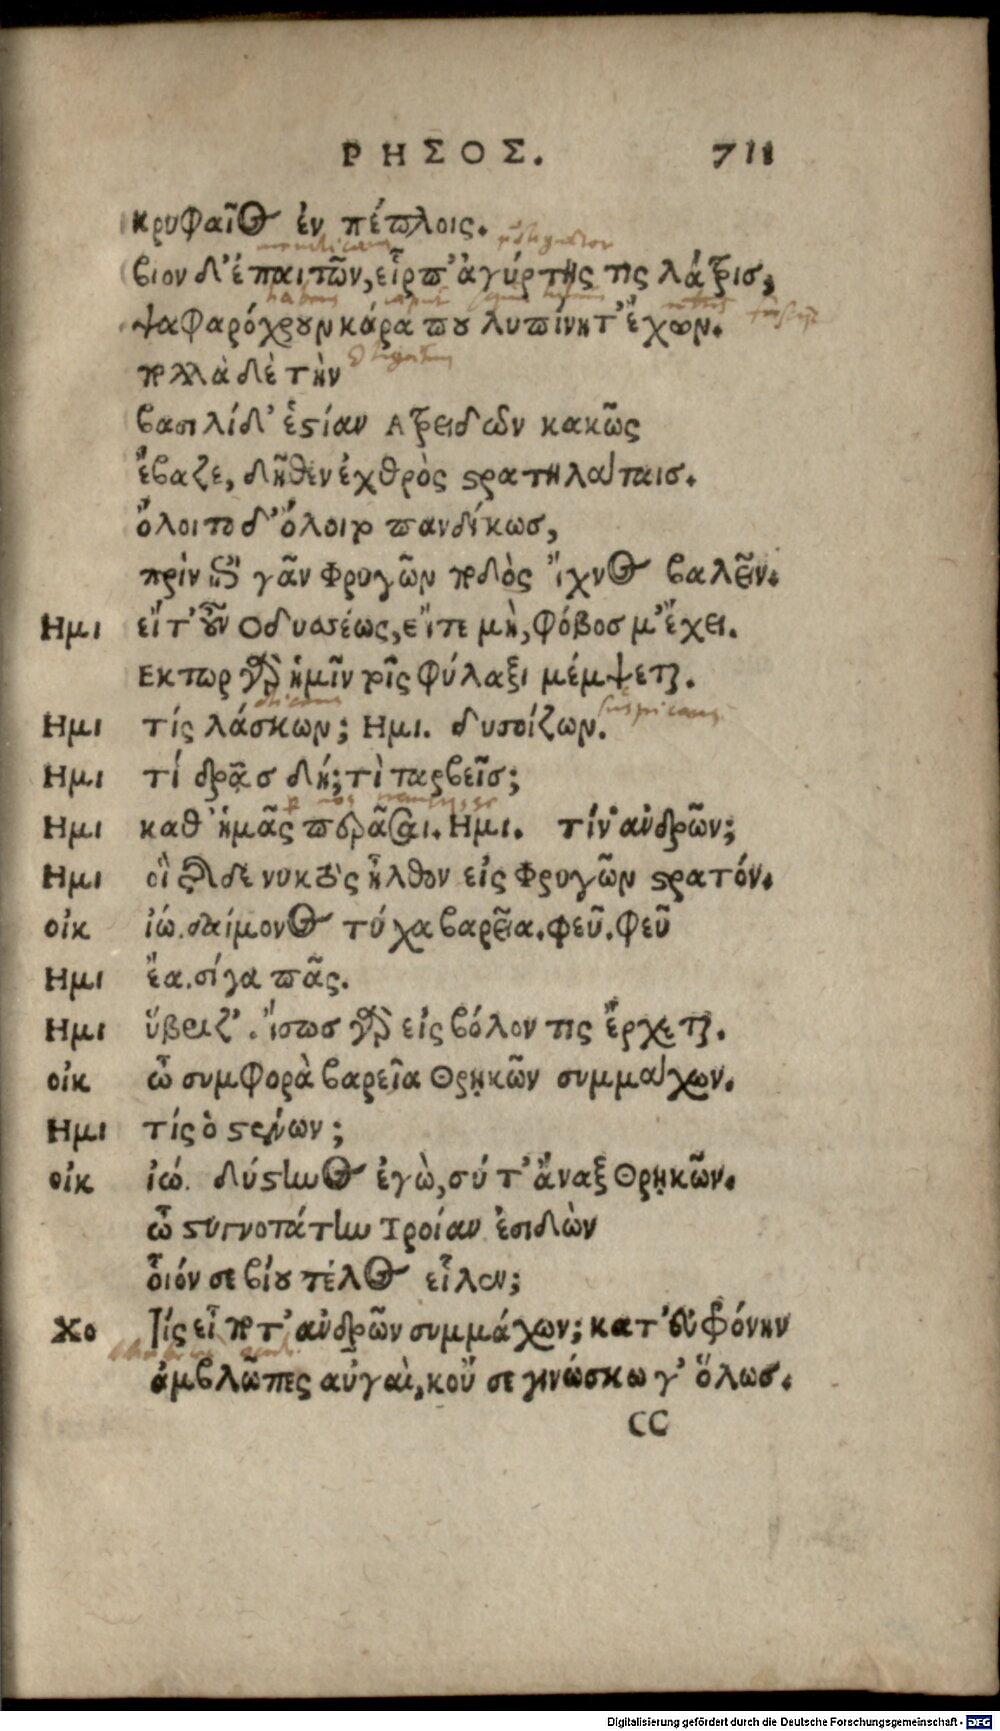 ΡΗΣΟΣ. 711
κρυφαῖος ἐν πέπλοις.
βίον δ' ἐπαιτῶν, εἷρπ' ἀγύρτης τις λάτρις,
ψαφαρόχρουν κάρα πολυπινητ' ἔχων.
πολλὰ δὲ τὴν
βασιλίδ' ἑστίαν Ατρειδῶν κακῶς
ἔβαζε, δῆθεν ἐχθρὸς στρατηλάταις.
ὄλοιτο δ' ὄλοιτο πανδίκως,
πρὶν ἐπὶ γᾶν Φρυγῶν ποδὸς ἴχνος βαλεῖν.
Ημι εἴτ' οὖν Οδυσσέως, εἴτε μὴ, φόβος μ' ἔχει.
Εκτωρ γὰρ ἡμῖν τοῖς φύλαξι μέμψεται.
Ημι τίς λάσκων; Ημι. δυσοίζων.
Ημι τί δρᾷς δή; τί ταρβεῖς;
Ημι καθ' ἡμᾶς περᾶσαι. Ημι. τίν' ἀνδρῶν;
Ημι οἳ τῆσδε νυκτὸς ἦλθον εἰς Φρυγῶν στρατόν.
οἰκ ἰώ. δαίμονος τύχα βαρεῖα. φεῦ. φεῦ
Ημι ἔα. σίγα πᾶς.
Ημι ὕβριζ'. ἴσως γὰρ εἰς βόλον τις ἔρχεται.
οἰκ ὦ συμφορὰ βαρεῖα Θρῃκῶν συμμάχων.
Ημι τίς ὁ στένων;
οἰκ ἰώ. δύστηνος ἐγὼ, σύ τ' ἄναξ Θρῃκῶν.
ὦ στυγνοτάτην Τροίαν ἐσιδὼν
οἷόν σε βίου τέλος εἷλεν;
Χο Τίς εἶ ποτ' ἀνδρῶν συμμάχων; κατ' εὐφρόνην
ἀμβλῶπες αὐγαὶ, κοὔ σε γινώσκω γ' ὅλως.
CC
Digitalisierung gefördert durch die Deutsche Forschungsgemeinschaft - DFG